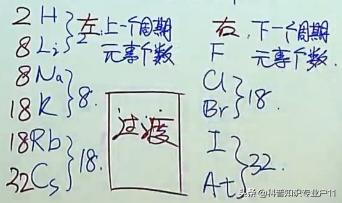 2 H
8 Li } 2
左,上一个周期
元素个数
8 Na
18 K } 8.
18 Rb
32 Cs } 18.
过渡
右,下一个周期
元素个数.
F
Cl
Br } 18.
I
At } 32.
头条 @科普知识专业户11